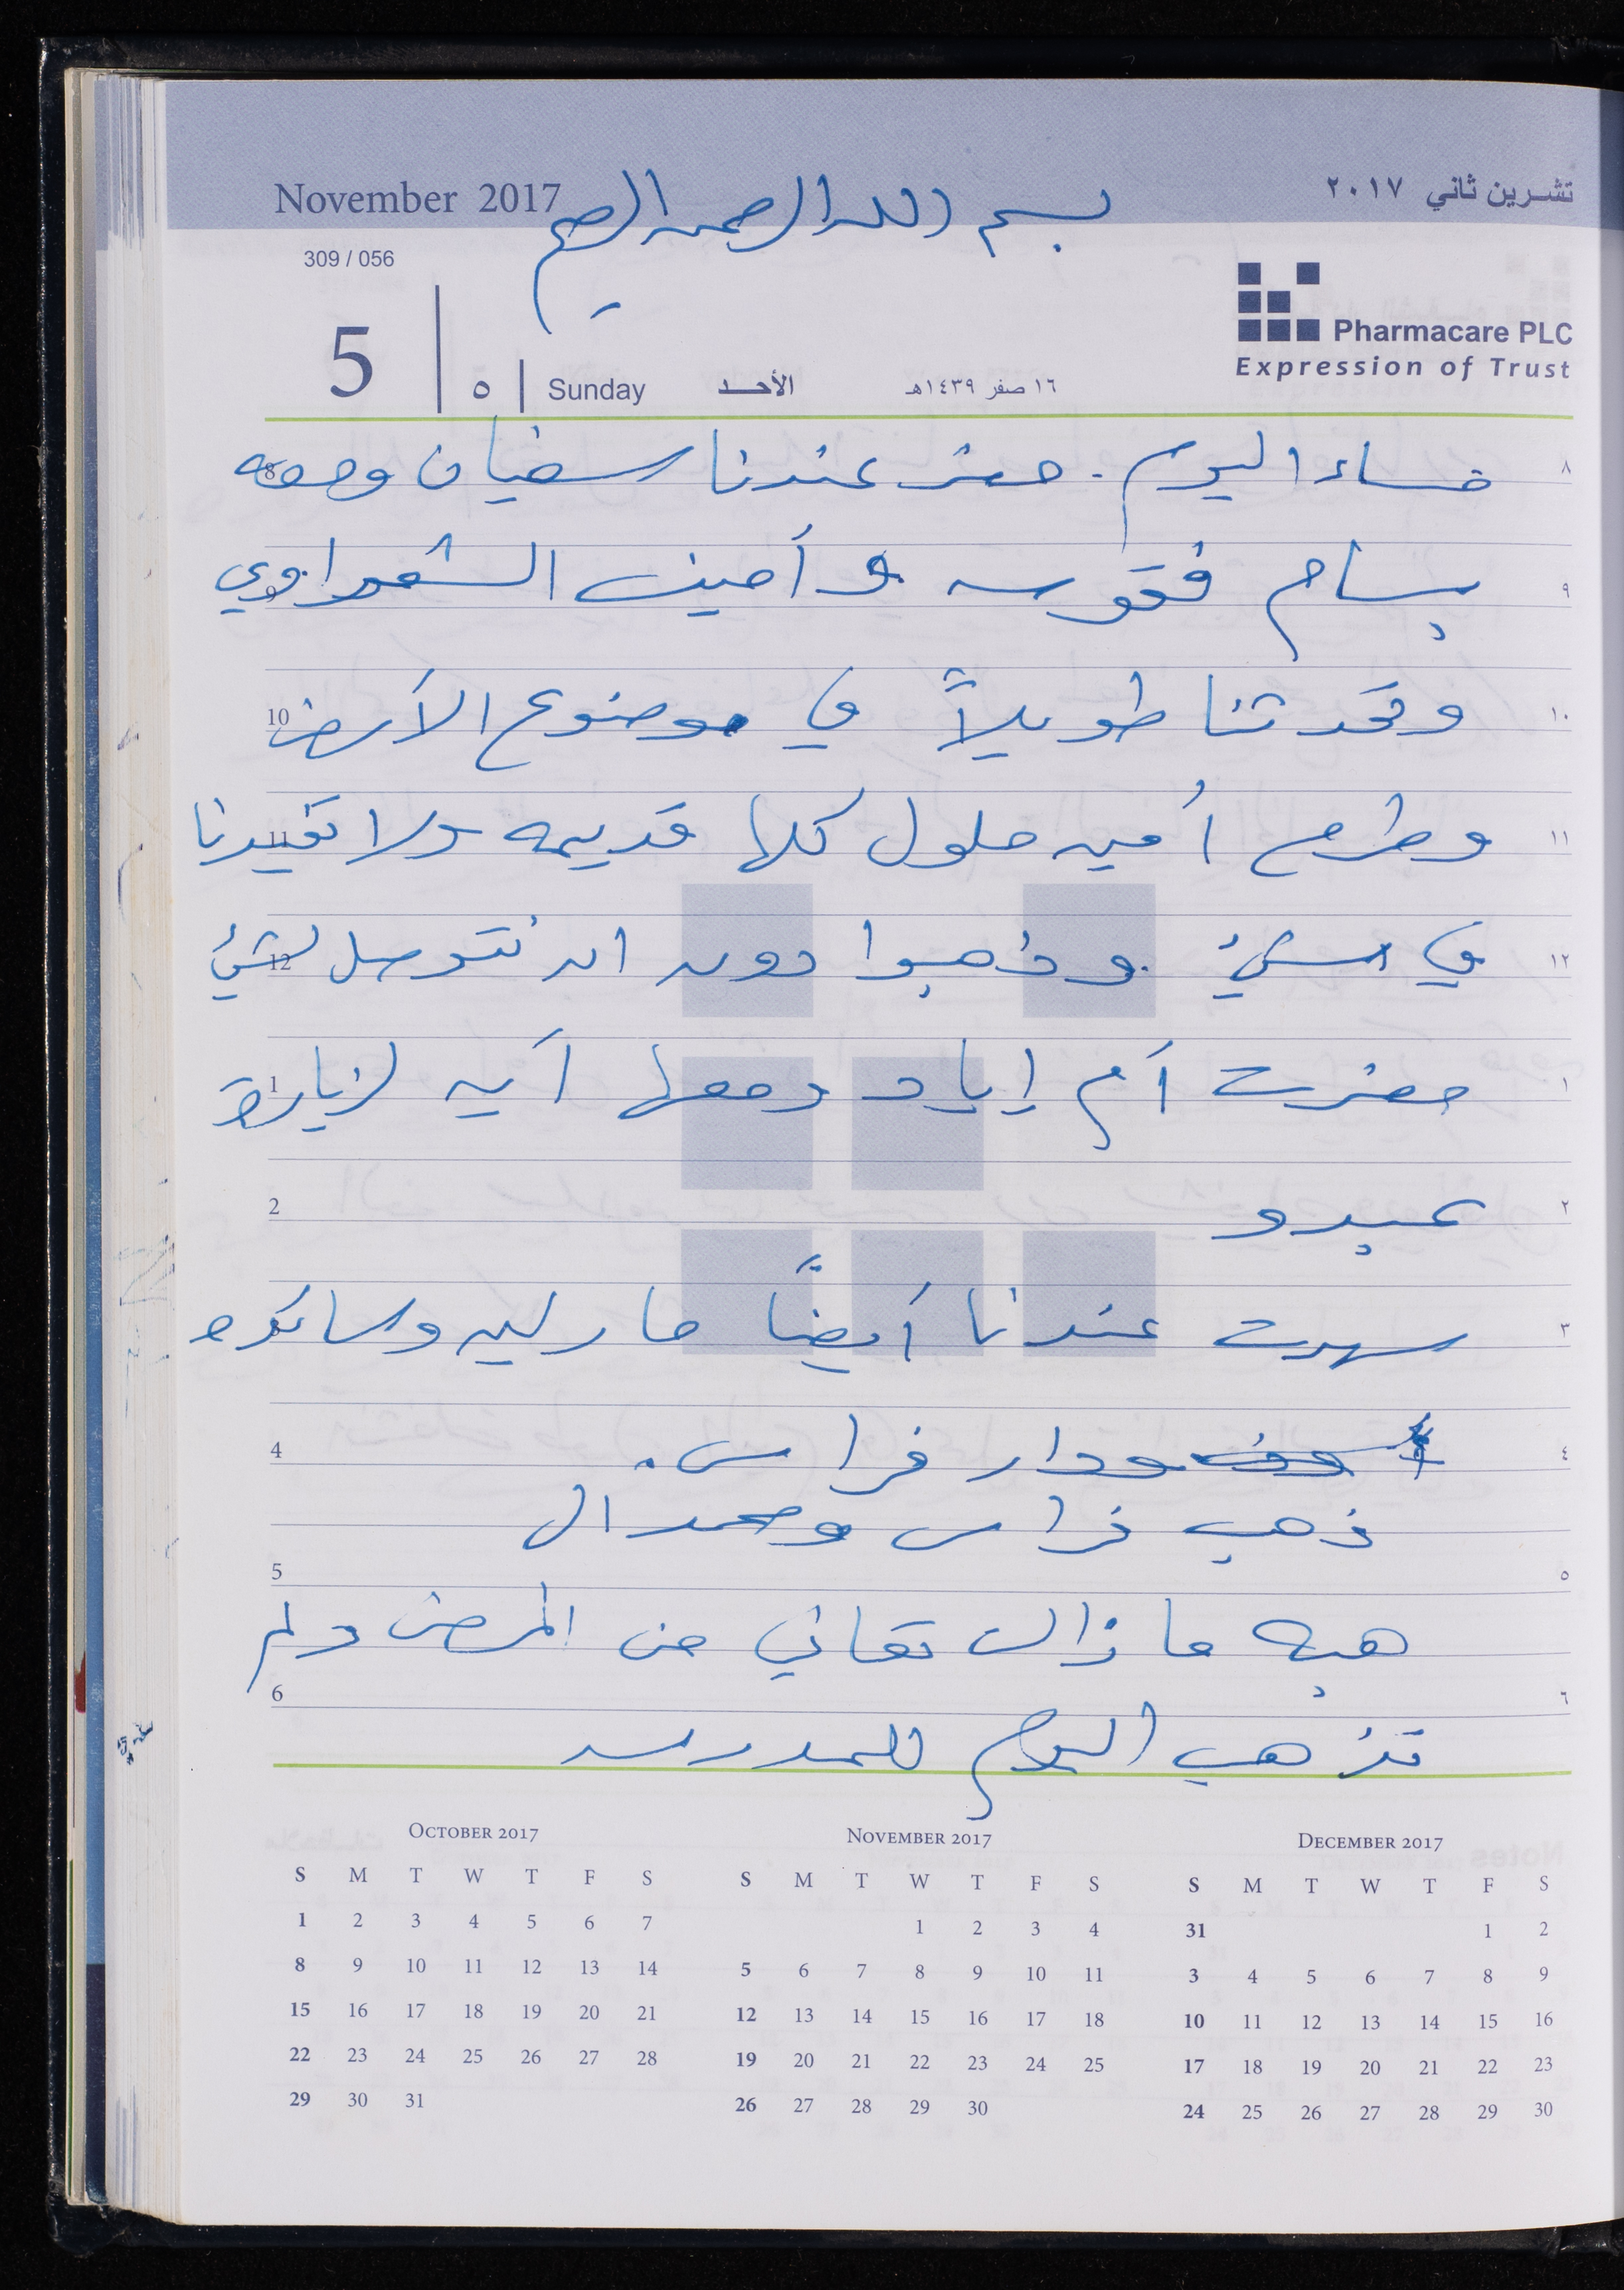 November 2017
تشرين ثاني ٢٠١٧
بسم الله الرحمن الرحيم
309 / 056
Pharmacare PLC
Expression of Trust
5 | ٥ | Sunday الأحد ١٦ صفر ١٤٣٩هـ
8 مساء اليوم. حضر عندنا سفيان ومعه ٨
9 بسام فقوسه و أمين الشعراوي ٩
10 وتحدثنا طويلاً في موضوع الأرض ١٠
11 وطرح أمين حلول كلها قديمه ولا تفيدنا ١١
12 في شيء. وذهبوا دون ان نتوصل لشيء ١٢
1 حضرت أم إياد ومعها آيه لزيارة ١
2 عبدو ٢
3 سهرت عندنا أيضاً مارلين وساندره ٣
4 ودار فراس. ٤
ذهب فراس ومحمد ال
5 ٥
هبه ما زالت تعاني من المرض ولم
6 ٦
تذهب اليوم للمدرسه
October 2017
S M T W T F S
1 2 3 4 5 6 7
8 9 10 11 12 13 14
15 16 17 18 19 20 21
22 23 24 25 26 27 28
29 30 31
November 2017
S M T W T F S
1 2 3 4
5 6 7 8 9 10 11
12 13 14 15 16 17 18
19 20 21 22 23 24 25
26 27 28 29 30
December 2017
S M T W T F S
31 1 2
3 4 5 6 7 8 9
10 11 12 13 14 15 16
17 18 19 20 21 22 23
24 25 26 27 28 29 30